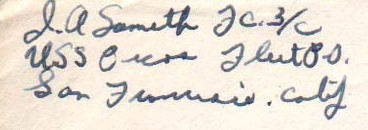 J. A Someth FC. 3/c
USS Pecos Fleet P.O.
San Francisco. Calif